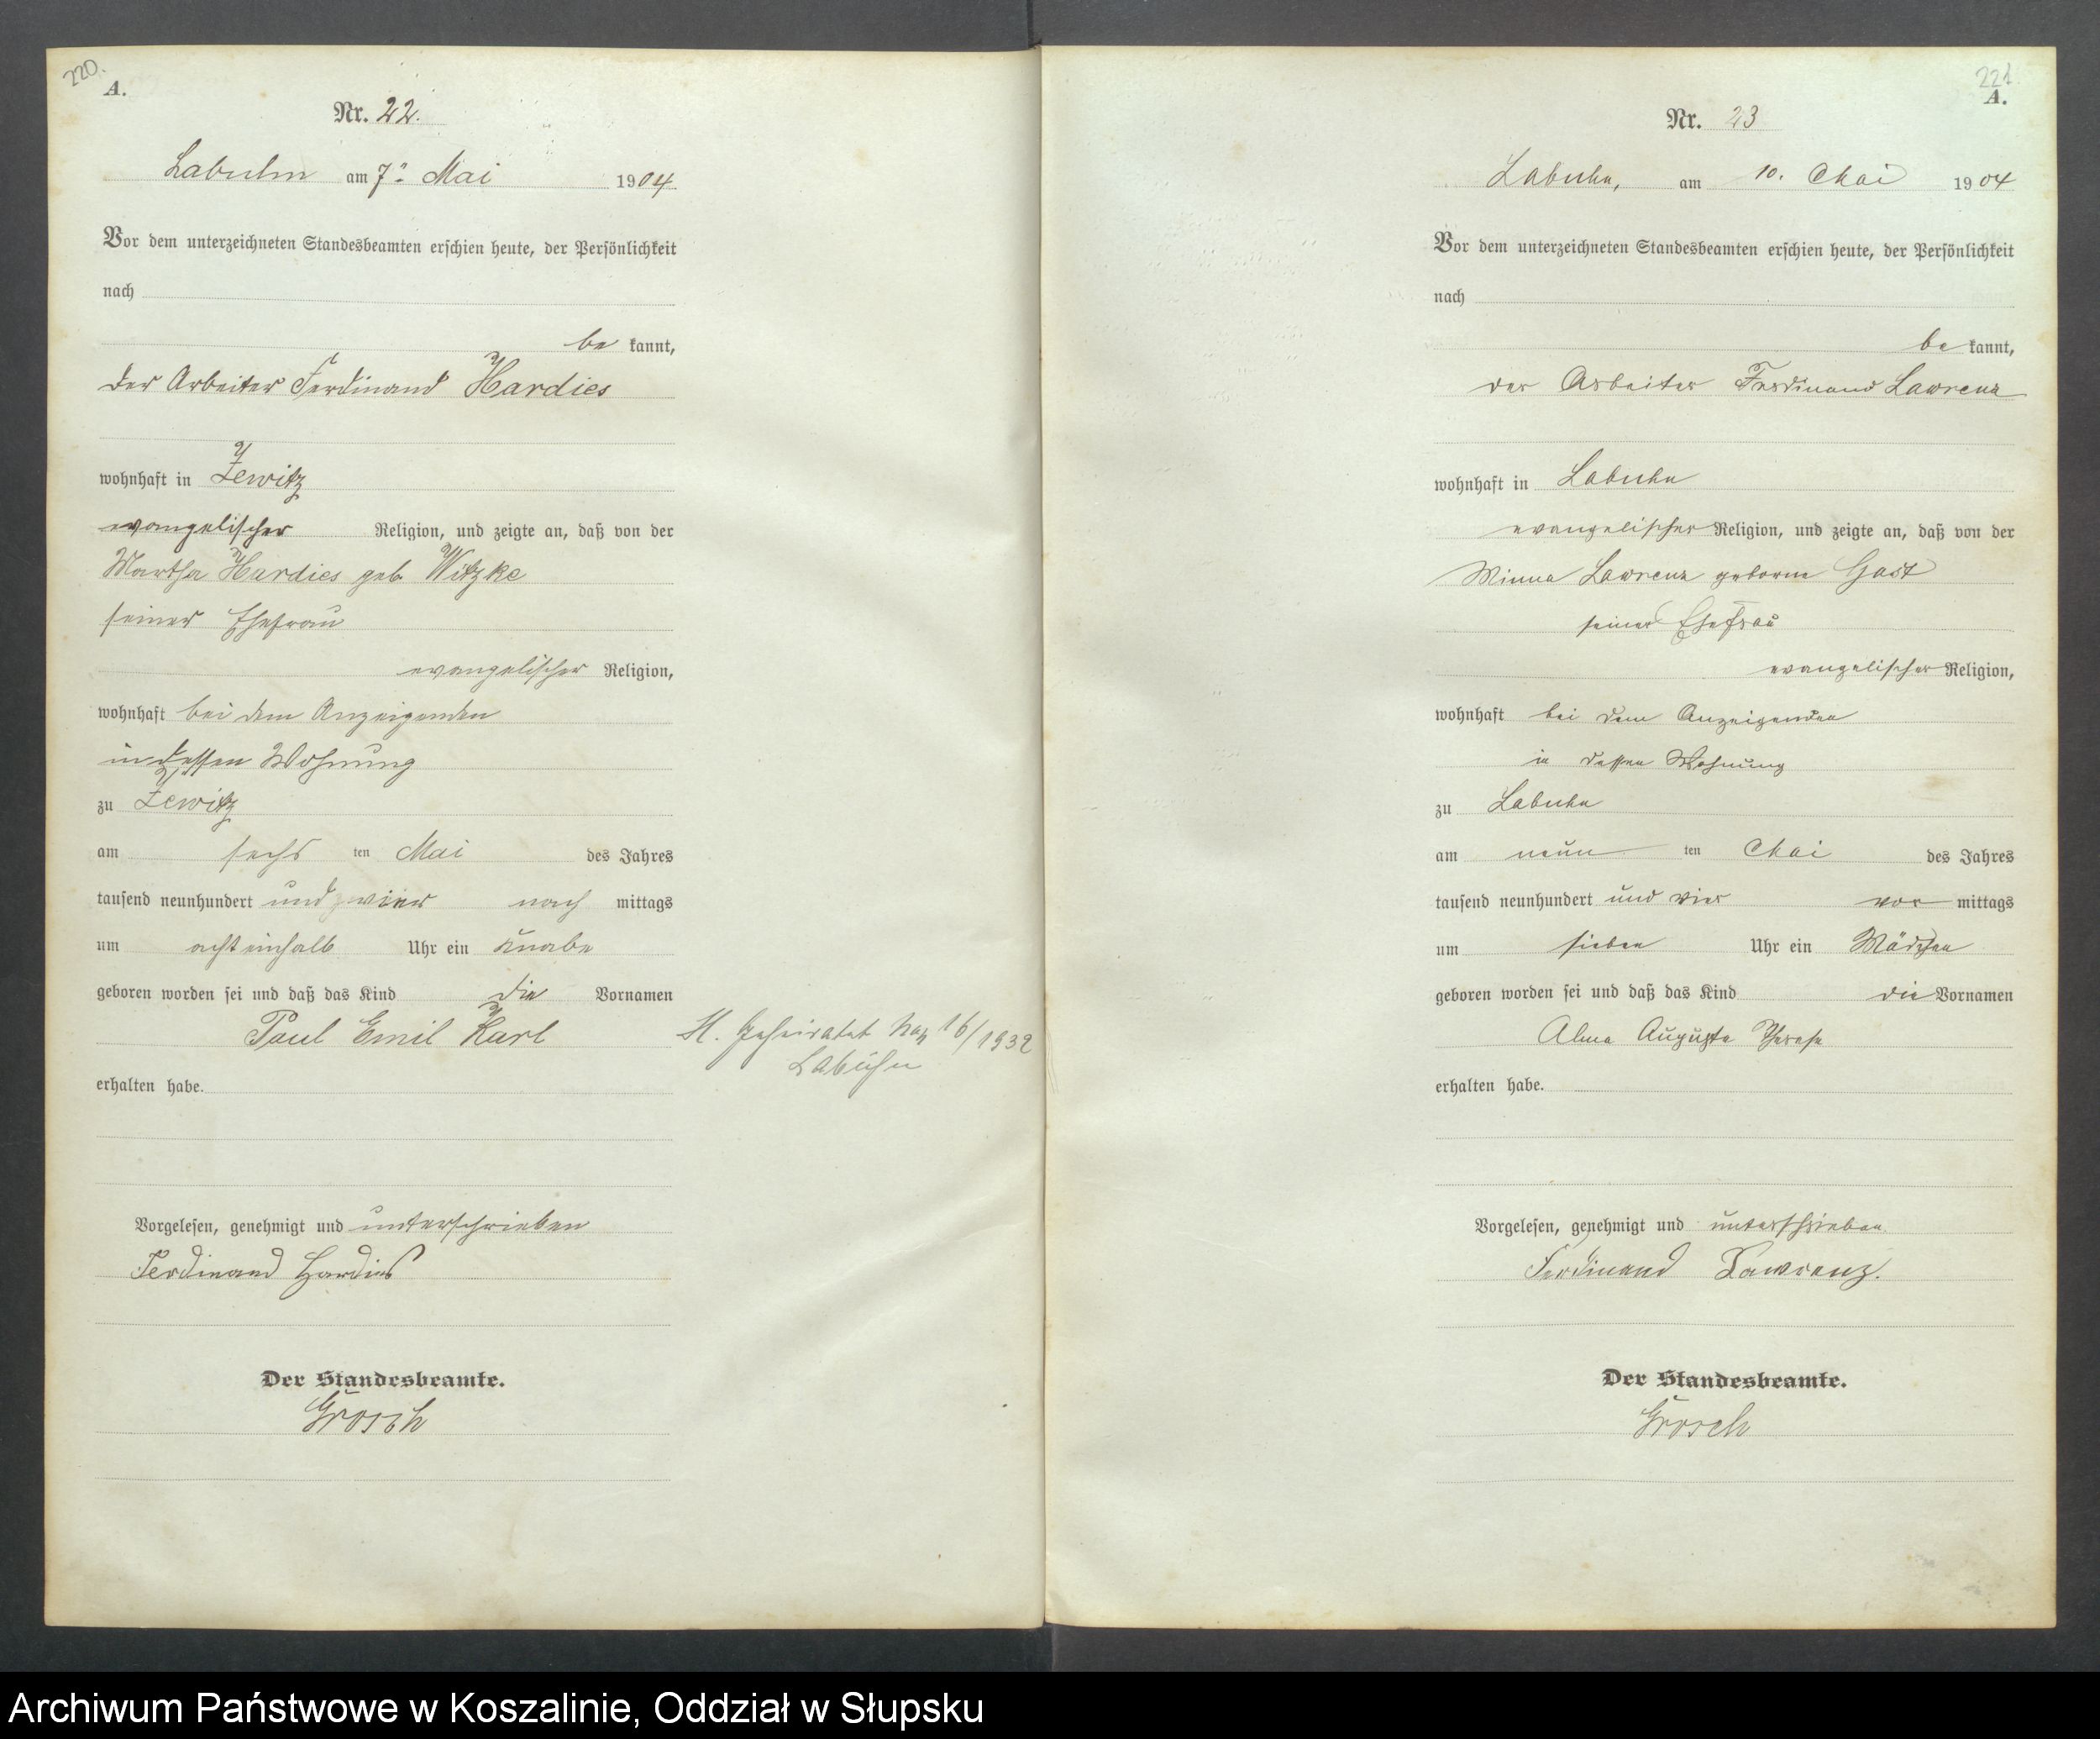 220.
A.
Nr. 22.
Labuhn am 7ⁿ Mai 1904
Vor dem unterzeichneten Standesbeamten erschien heute, der Persönlichkeit
nach
be kannt,
der Arbeiter Ferdinand Hardies
wohnhaft in Zewitz
evangelischer Religion, und zeigte an, daß von der
Martha Hardies geb. Witzke
seiner Ehefrau
evangelischer Religion,
wohnhaft bei dem Anzeigenden
in dessen Wohnung
zu Zewitz
am sechs ten Mai des Jahres
tausend neunhundert und vier nach mittags
um acht einhalb Uhr ein Knabe
geboren worden sei und daß das Kind die Vornamen
Paul Emil Karl
erhalten habe.
H. Geheiratet 16/1932
Labuhn
Vorgelesen, genehmigt und unterschrieben
Ferdinand Hardies
Der Standesbeamte.
Grosch
221.
A.
Nr. 23
Labuhn, am 10. Mai 1904
Vor dem unterzeichneten Standesbeamten erschien heute, der Persönlichkeit
nach
be kannt,
der Arbeiter Ferdinand Lawrenz
wohnhaft in Labuhn
evangelischer Religion, und zeigte an, daß von der
Minna Lawrenz geborne Gast
seiner Ehefrau
evangelischer Religion,
wohnhaft bei dem Anzeigenden
in dessen Wohnung
zu Labuhn
am neun ten Mai des Jahres
tausend neunhundert und vier vor mittags
um sieben Uhr ein Mädchen
geboren worden sei und daß das Kind die Vornamen
Alma Auguste Therese
erhalten habe.
Vorgelesen, genehmigt und unterschrieben
Ferdinand Lawrenz.
Der Standesbeamte.
Grosch
Archiwum Państwowe w Koszalinie, Oddział w Słupsku